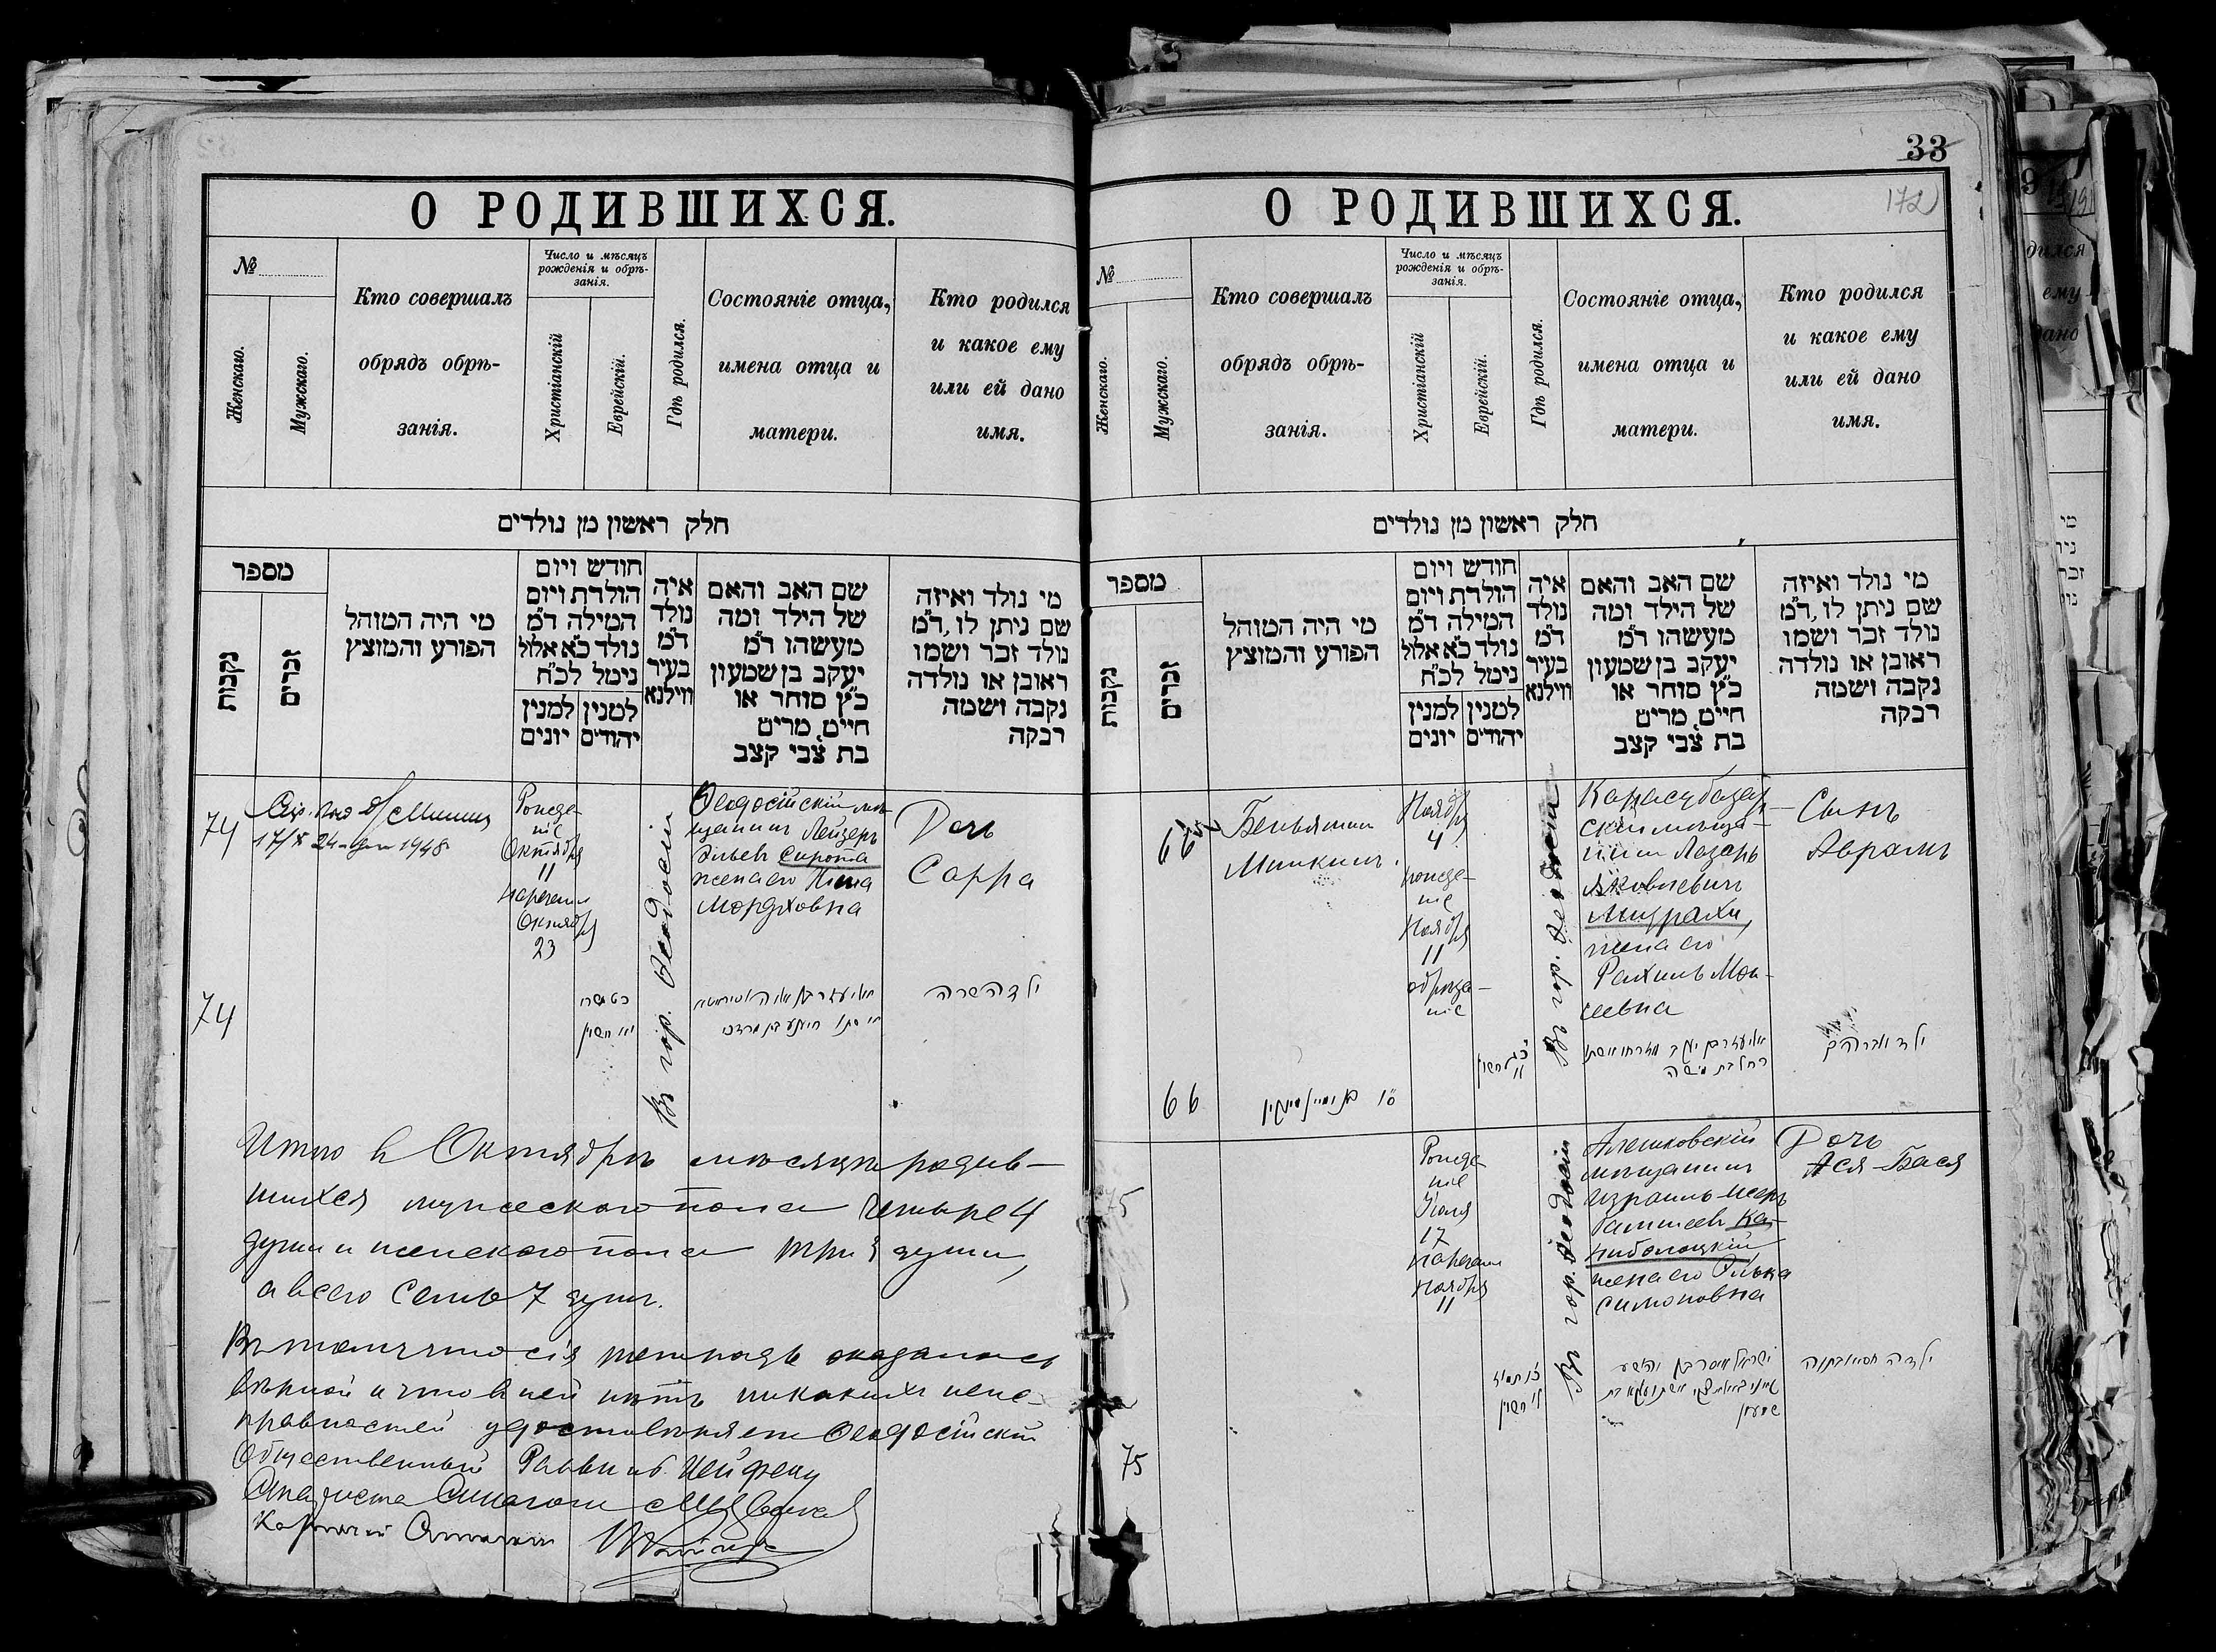 О РОДИВШИХСЯ.
№
Женскаго.
Мужскаго.
Кто совершалъ
обрядъ обрѣ-
занія.
Число и мѣсяцъ
рожденія и обрѣ-
занія.
Христіанскій
Еврейскій.
Гдѣ родился.
Состояніе отца,
имена отца и
матери.
Кто родился
и какое ему
или ей дано
имя.
חלק ראשון מן נולדים
מספר
נקבות
זכרים
מי היה המוהל
הפורע והמוצץ
חודש ויום
הולדת ויום
המילה ד״מ
נולד כ״א אלול
נימל לכ״ח
למנין יונים
למנין יהודים
איה
נולד
ד״מ
בעיר
ווילנא
שם האב והאם
של הילד ומה
מעשהו ד״מ
יעקב בן שמעון
כ״ץ סוחר או
חיים, מרים
בת צבי קצב
מי נולד ואיזה
שם ניתן לו, ד״מ
נולד זכר ושמו
ראובן או נולדה
נקבה ושמה
רבקה
74
17/X 1948
Рожде-
ніе
Октября
11
Октября
23
Въ гор. Ѳеодосіи
Ѳеодосійскій мѣ-
щанинъ Лейзеръ
Эльевъ Сирота
жена его
Мордховна
Дочь
Сарра
74
ילדה שרה
Итого въ Октябрѣ мѣсяцѣ родив-
шихся мужескаго пола четыре 4
души и женскаго пола три 3 души,
а всего семь 7 душъ.
Въ томъ что сія тетрадь оказалась
вѣрной и что въ ней нѣтъ никакихъ неис-
правностей удостовѣряетъ Ѳеодосійскій
Общественный Раввинъ
Староста Синагоги
33
172
О РОДИВШИХСЯ.
№
Женскаго.
Мужскаго.
Кто совершалъ
обрядъ обрѣ-
занія.
Число и мѣсяцъ
рожденія и обрѣ-
занія.
Христіанскій
Еврейскій.
Гдѣ родился.
Состояніе отца,
имена отца и
матери.
Кто родился
и какое ему
или ей дано
имя.
חלק ראשון מן נולדים
מספר
נקבות
זכרים
מי היה המוהל
הפורע והמוצץ
חודש ויום
הולדת ויום
המילה ד״מ
נולד כ״א אלול
נימל לכ״ח
למנין יונים
למנין יהודים
איה
נולד
ד״מ
בעיר
ווילנא
שם האב והאם
של הילד ומה
מעשהו ד״מ
יעקב בן שמעון
כ״ץ סוחר או
חיים, מרים
בת צבי קצב
מי נולד ואיזה
שם ניתן לו, ד״מ
נולד זכר ושמו
ראובן או נולדה
נקבה ושמה
רבקה
66
Беньямин
Минкинъ.
Ноября
4
рожде-
ніе
Ноября
11
обрѣза-
ніе
Въ гор. Ѳеодосіи
Карасубазар-
скій мѣща-
нинъ Лазарь
Яковлевичъ
Мизрахи,
жена его
Рахиль Мои-
сеевна
Сынъ
Аврамъ
רחל בת משה
ילד אברהם
66
75
Рожде-
ніе
17
Ноября
11
Въ гор. Ѳеодосіи
Алешковскій
мѣщанинъ
Израиль-
жена его Ривка
Симоновна
Дочь
Ася-Бася
שמעון
75